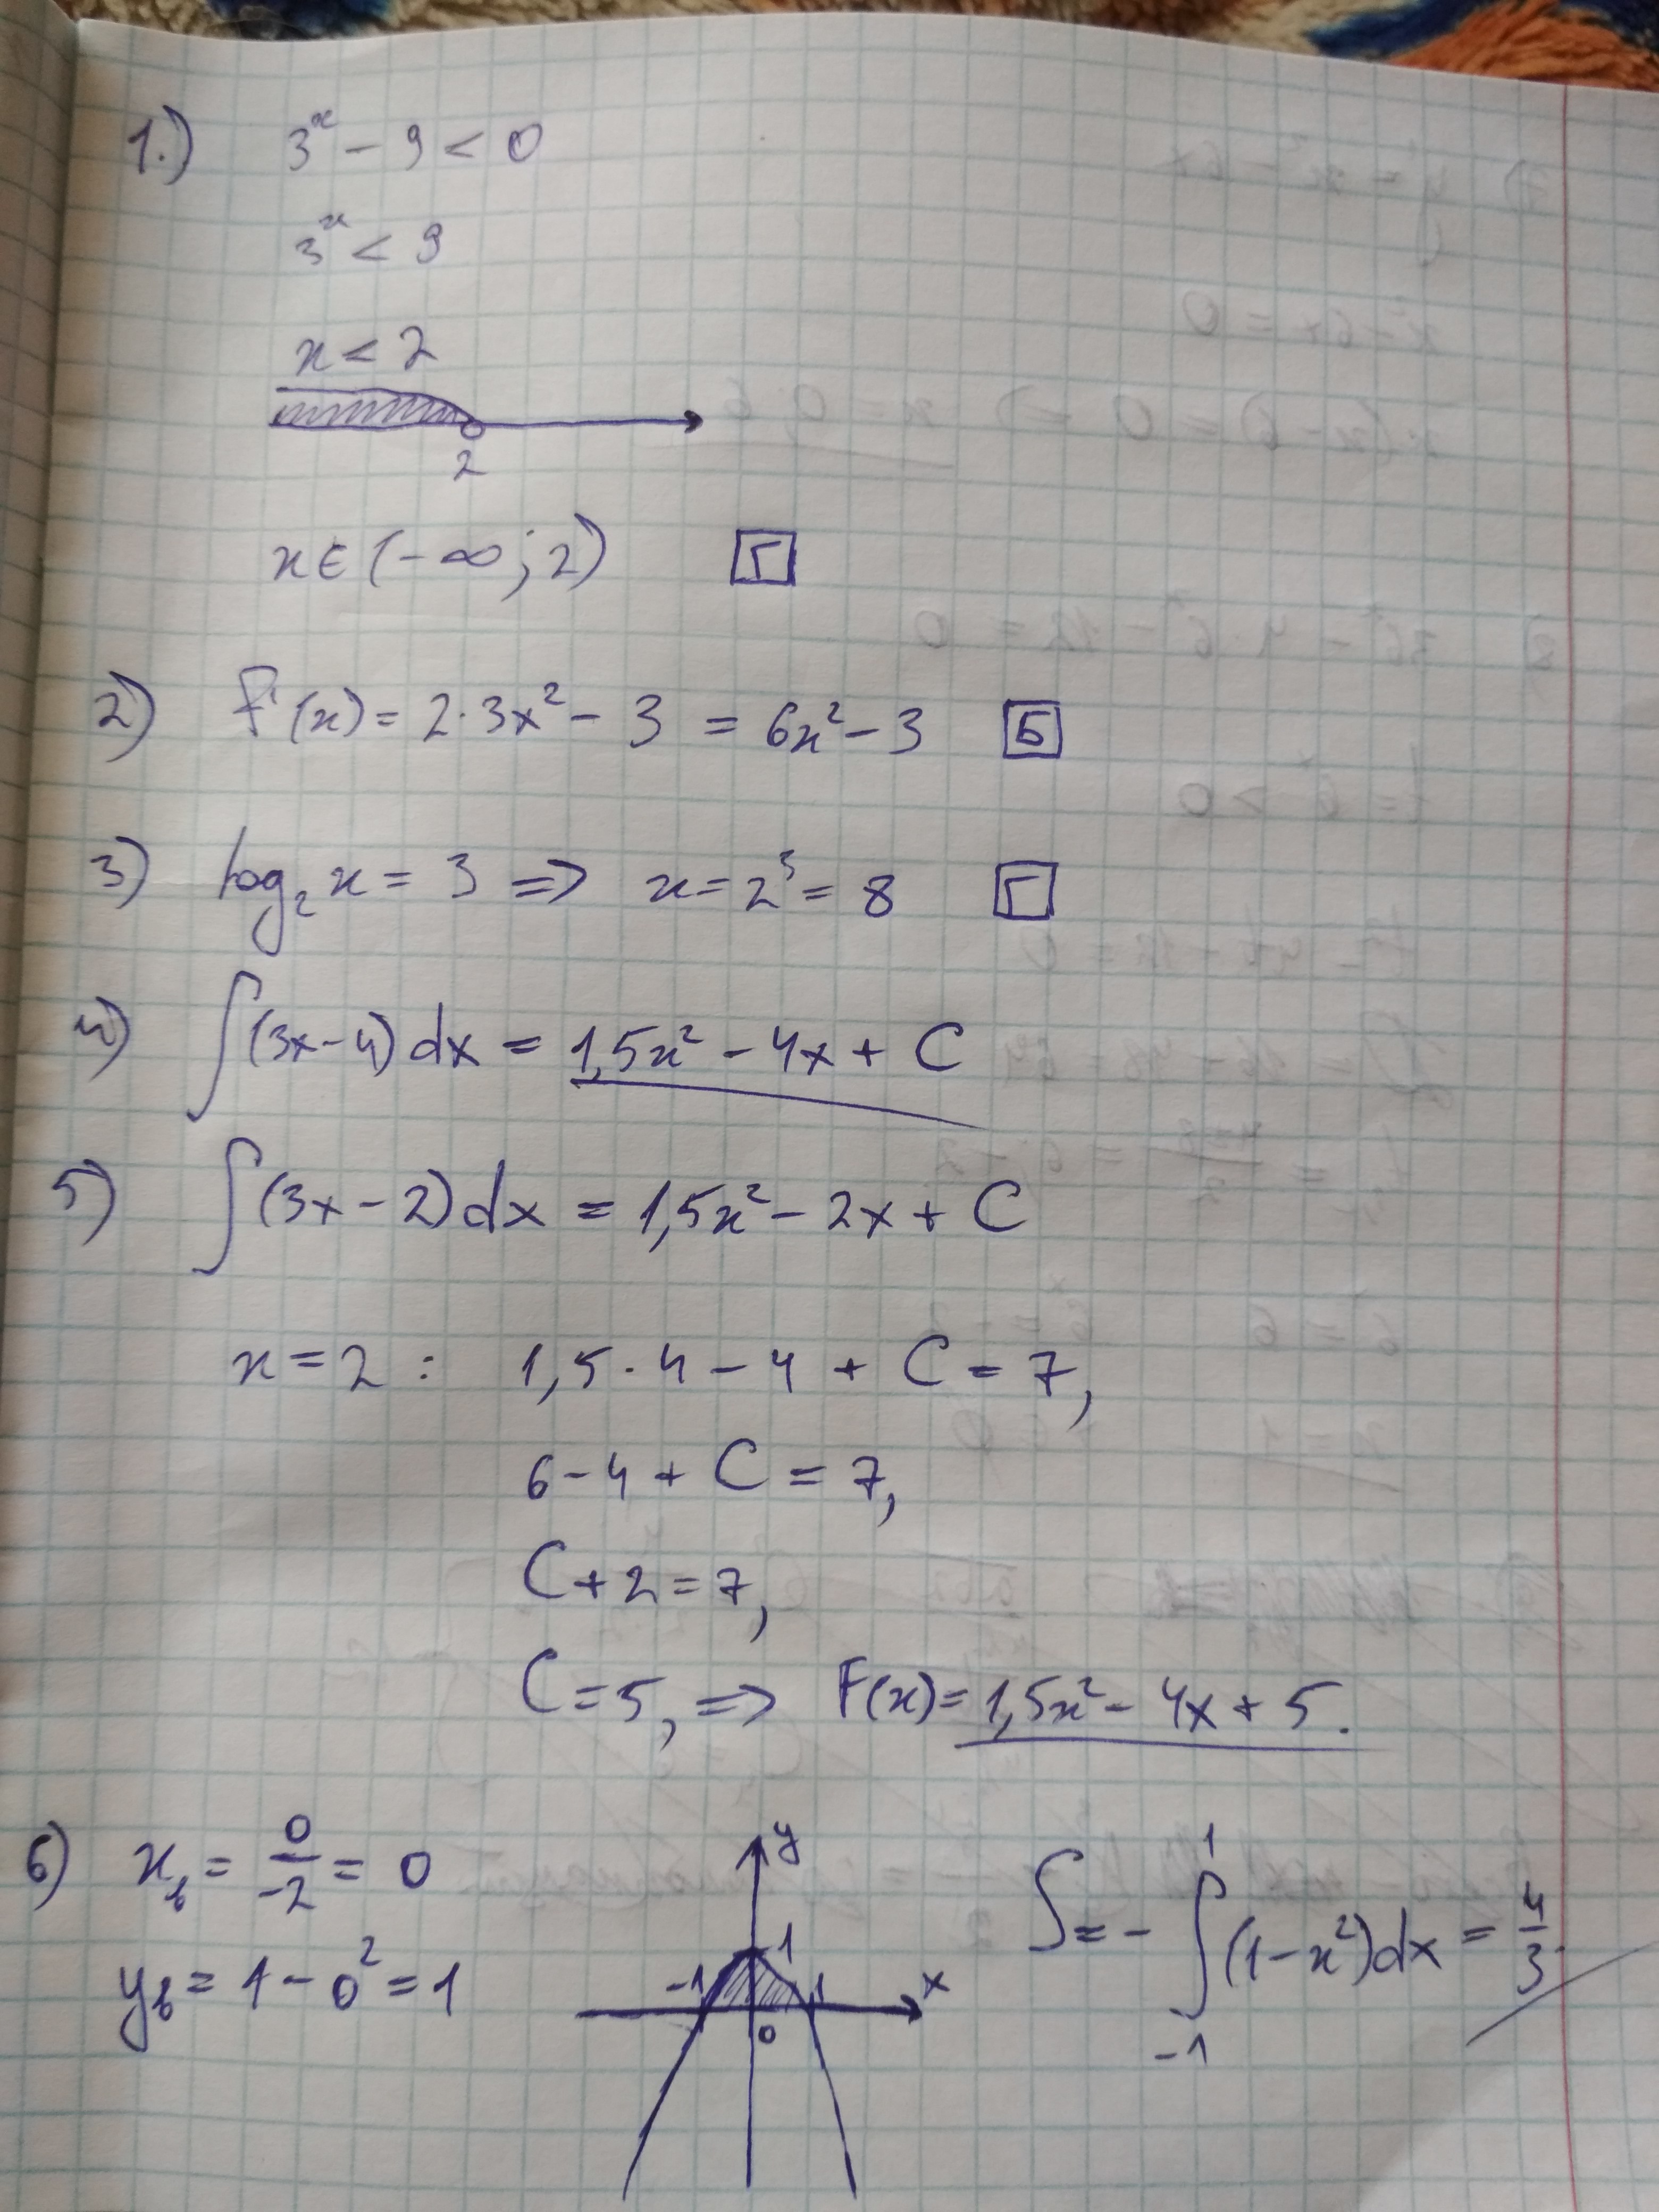 1.) 3ˣ - 9 < 0
3ˣ < 9
x < 2
2
x ∈ (-∞; 2) Г
2) F'(x) = 2·3x² - 3 = 6x² - 3 Б
3) log₂ x = 3 => x = 2³ = 8 Г
4) ∫(3x-4)dx = 1,5x² - 4x + C
5) ∫(3x-2)dx = 1,5x² - 2x + C
x = 2 : 1,5·4 - 4 + C = 7,
6 - 4 + C = 7,
C + 2 = 7,
C = 5, => F(x) = 1,5x² - 4x + 5.
6) x_в = 0/-2 = 0
y_в = 1 - 0² = 1
y
1
-1 1 x
0
S = - ∫₋₁¹ (1-x²)dx = 4/3.